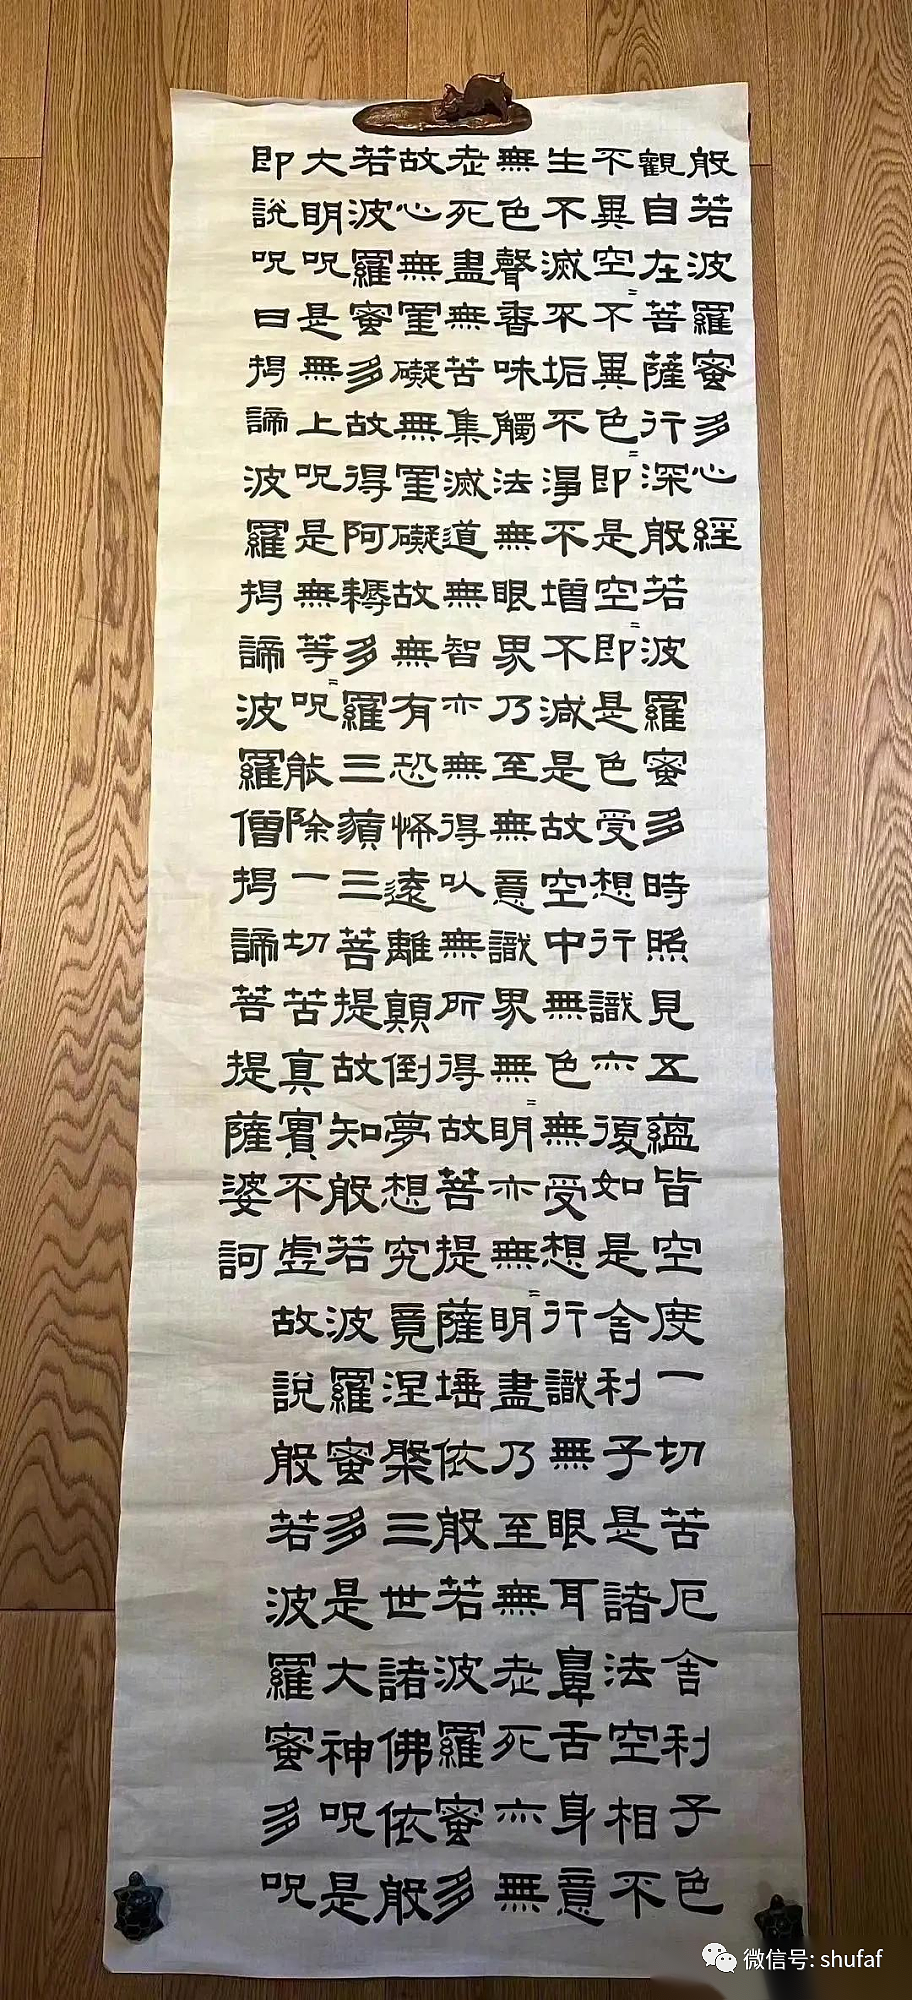 般若波羅蜜多心經
觀自在菩薩行深般若波羅蜜多時照見五蘊皆空度一切苦厄舍利子色
不異空=不異色=即是空=即是色受想行識亦復如是舍利子是諸法空相不
生不滅不垢不淨不增不減是故空中無色無受想行識無眼耳鼻舌身意
無色聲香味觸法無眼界乃至無意識界無=明亦無=明盡乃至無老死亦無
老死盡無苦集滅道無智亦無得以無所得故菩提薩埵依般若波羅蜜多
故心無罣礙無罣礙故無有恐怖遠離顛倒夢想究竟涅槃三世諸佛依般
若波羅蜜多故得阿耨多羅三藐三菩提故知般若波羅蜜多是大神呪是
大明呪是無上呪是無等=呪能除一切苦真實不虛故說般若波羅蜜多呪
即說呪曰揭諦波羅揭諦波羅僧揭諦菩提薩婆訶
微信号: shufaf